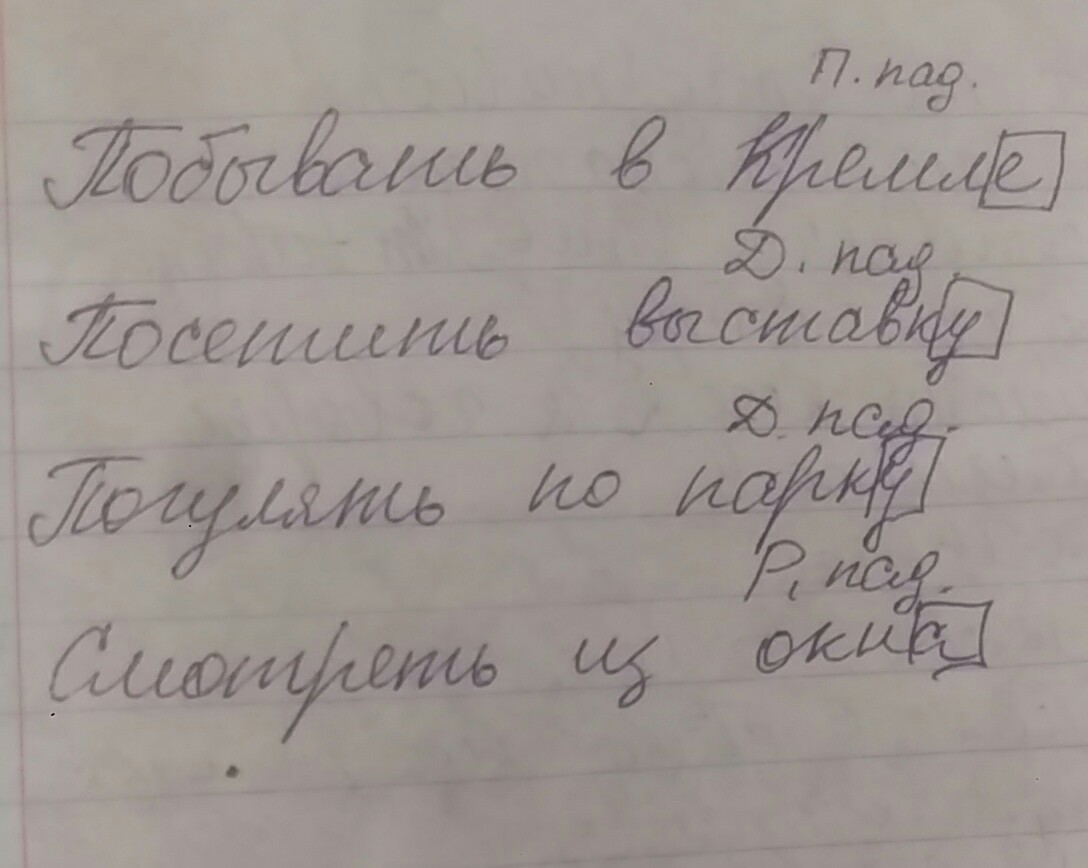 П. пад.
Побывать в Кремле
Д. пад.
Посетить выставку
Д. пад.
Погулять по парку
Р. пад.
Смотреть из окна